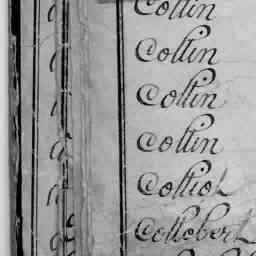 Collin
Collin
Collin
Collin
Colliot
Collobert